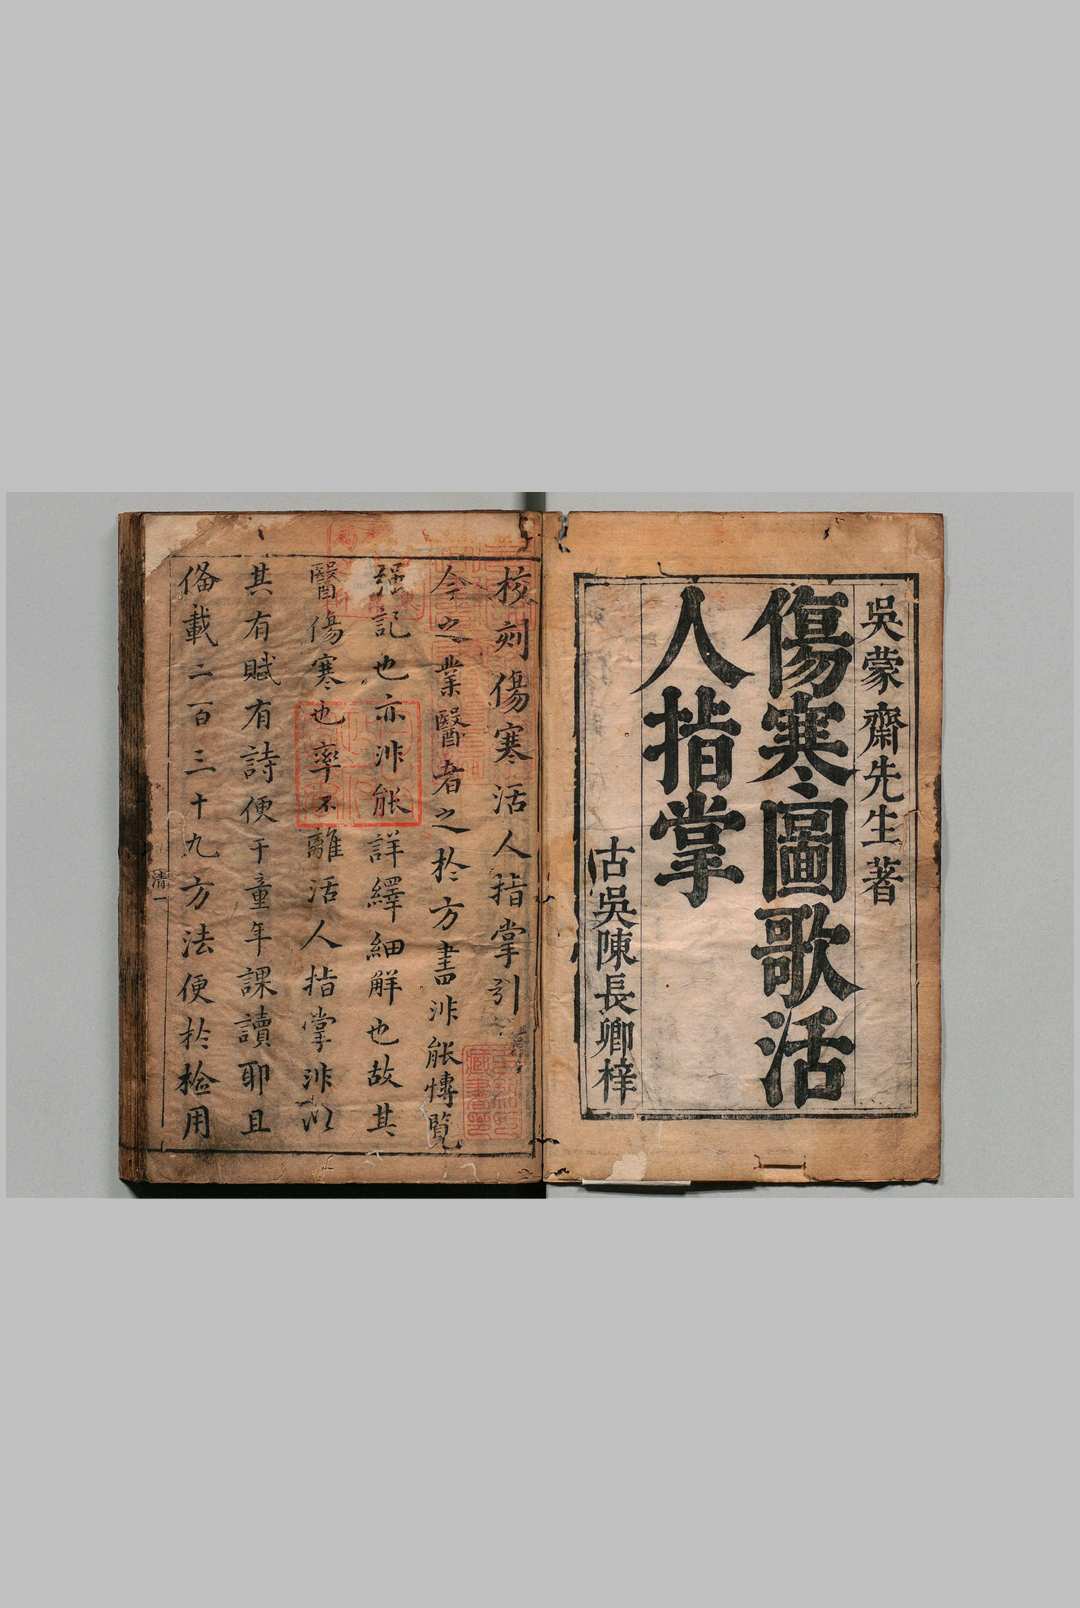 吳蒙齋先生著
傷寒圖歌活
人指掌
古吳陳長卿梓
校刻傷寒活人指掌引
今之業醫者之於方書非能慱覽
强記也亦非能詳繹細解也故其
醫傷寒也率不離活人指掌非以
其有賦有詩便于童年課讀耶且
俻載二百三十九方法便於檢用
藏書